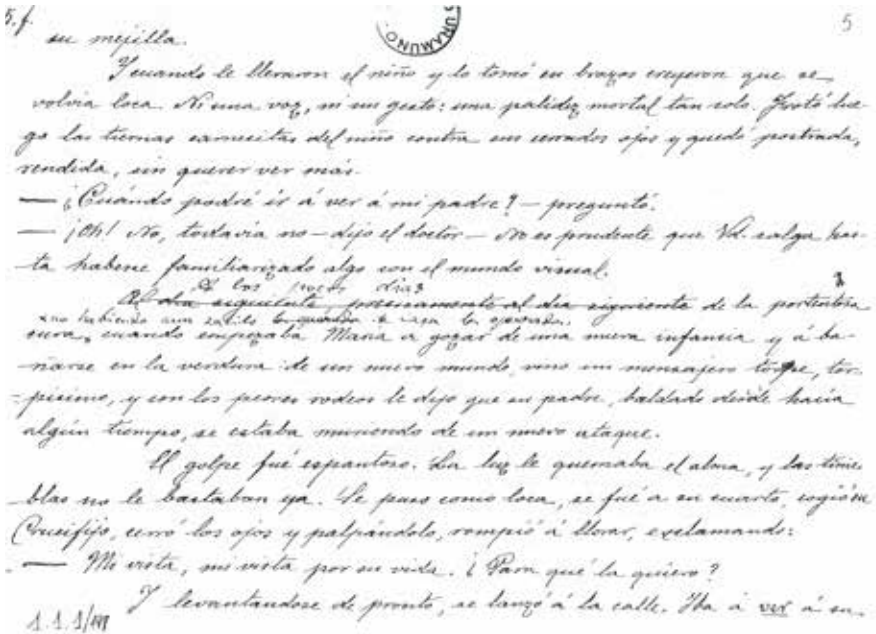 5. f. UNAMUNO. 5
su mejilla.
Y cuando le llevaron el niño y lo tomó en brazos creyeron que se
volvía loca. Ni una voz, ni un gesto: una palidez mortal tan solo. Frotó lue-
go las tiernas carnecitas del niño contra sus cerrados ojos y quedó postrada,
rendida, sin querer ver más.
— ¿Cuándo podré ir á ver á mi padre? — preguntó.
— ¡Oh! No, todavía no — dijo el doctor — No es prudente que Vd. salga has-
ta haberse familiarizado algo con el mundo visual.
A los pocos dias
Al dia siguiente, precisamente al dia siguiente de la portentosa
x no habiendo aun salido de casa la operada.
cura, cuando empezaba María a gozar de una nueva infancia y á ba-
ñarse en la verdura de un nuevo mundo, vino un mensajero torpe, tor-
písimo, y con los peores rodeos le dijo que su padre, baldado desde hacía
algún tiempo, se estaba muriendo de un nuevo ataque.
El golpe fué espantoso. La luz le quemaba el alma, y las tinie-
blas no le bastaban ya. Se puso como loca, se fué a su cuarto, cogió su
Crucifijo, cerró los ojos y palpándolo, rompió á llorar, exclamando:
— Mi vista, mi vista por su vida. ¿Para qué la quiero?
Y levantandose de pronto, se lanzó á la calle. Iba á ver á su
1.1.1/